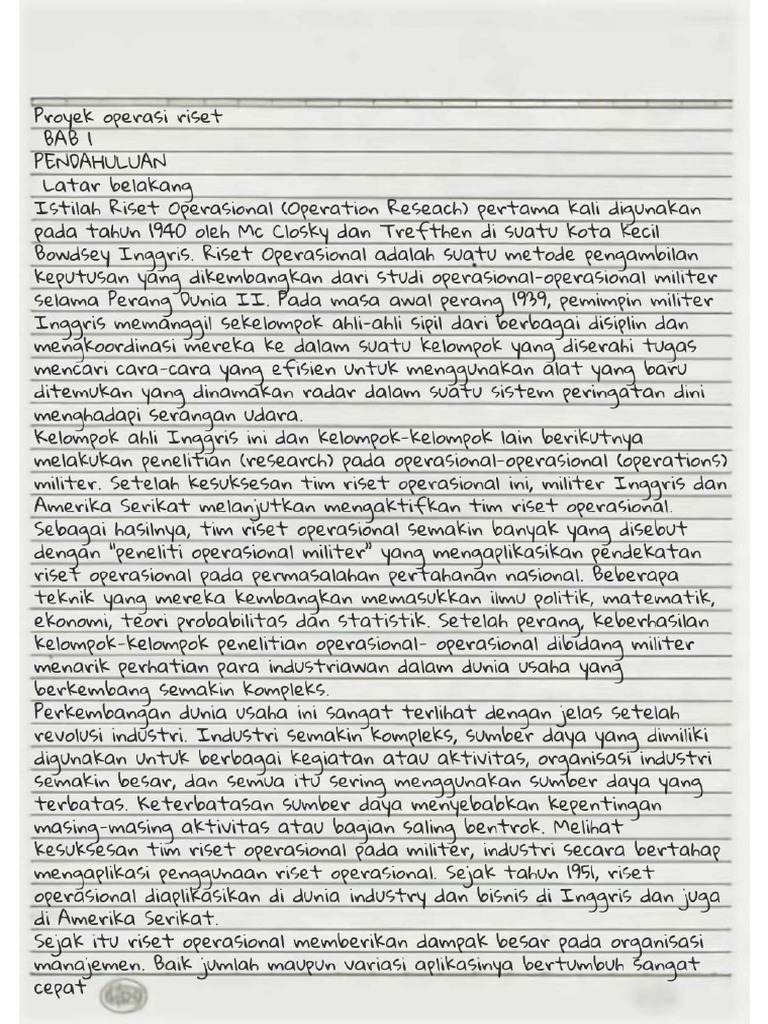 Proyek operasi riset
BAB 1
PENDAHULUAN
Latar belakang
Istilah Riset Operasional (Operation Reseach) pertama kali digunakan
pada tahun 1940 oleh Mc Closky dan Trefthen di suatu kota kecil
Bowdsey Inggris. Riset Operasional adalah suatu metode pengambilan
keputusan yang dikembangkan dari studi operasional-operasional militer
selama Perang Dunia II. Pada masa awal perang 1939, pemimpin militer
Inggris memanggil sekelompok ahli-ahli sipil dari berbagai disiplin dan
mengkoordinasi mereka ke dalam suatu kelompok yang diserahi tugas
mencari cara-cara yang efisien untuk menggunakan alat yang baru
ditemukan yang dinamakan radar dalam suatu sistem peringatan dini
menghadapi serangan udara.
Kelompok ahli Inggris ini dan kelompok-kelompok lain berikutnya
melakukan penelitian (research) pada operasional-operasional (operations)
militer. Setelah kesuksesan tim riset operasional ini, militer Inggris dan
Amerika Serikat melanjutkan mengaktifkan tim riset operasional.
Sebagai hasilnya, tim riset operasional semakin banyak yang disebut
dengan "peneliti operasional militer" yang mengaplikasikan pendekatan
riset operasional pada permasalahan pertahanan nasional. Beberapa
teknik yang mereka kembangkan memasukkan ilmu politik, matematik,
ekonomi, teori probabilitas dan statistik. Setelah perang, keberhasilan
kelompok-kelompok penelitian operasional- operasional dibidang militer
menarik perhatian para industriawan dalam dunia usaha yang
berkembang semakin kompleks.
Perkembangan dunia usaha ini sangat terlihat dengan jelas setelah
revolusi industri. Industri semakin kompleks, sumber daya yang dimiliki
digunakan untuk berbagai kegiatan atau aktivitas, organisasi industri
semakin besar, dan semua itu sering menggunakan sumber daya yang
terbatas. Keterbatasan sumber daya menyebabkan kepentingan
masing-masing aktivitas atau bagian saling bentrok. Melihat
kesuksesan tim riset operasional pada militer, industri secara bertahap
mengaplikasi penggunaan riset operasional. Sejak tahun 1951, riset
operasional diaplikasikan di dunia industry dan bisnis di Inggris dan juga
di Amerika Serikat.
Sejak itu riset operasional memberikan dampak besar pada organisasi
manajemen. Baik jumlah maupun variasi aplikasinya bertumbuh sangat
cepat